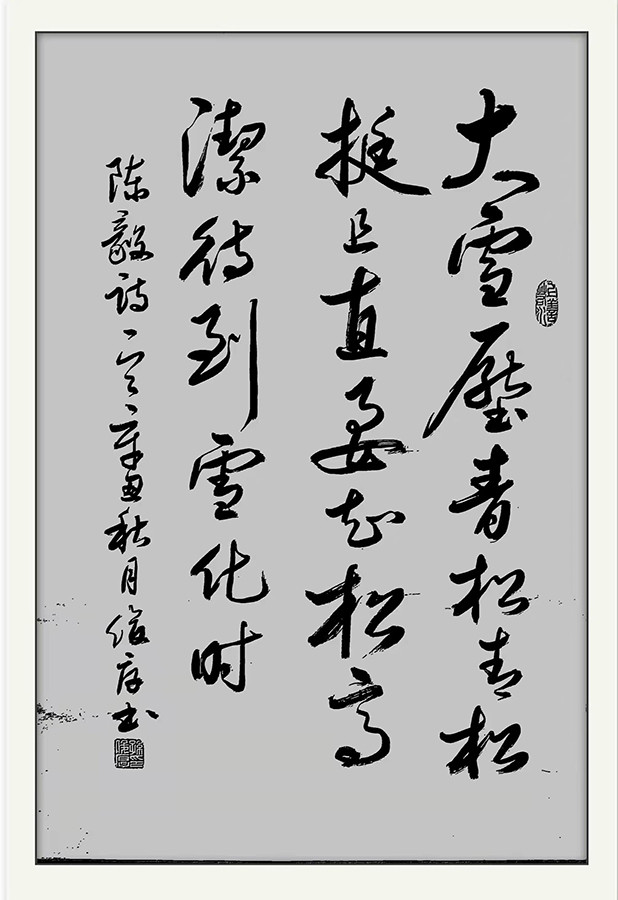 大雪壓青松青松
挺且直要知松高
潔待到雪化时
陈毅诗一首辛丑秋月书